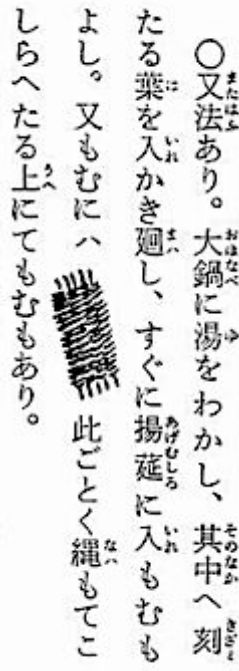 〇又法あり。大鍋に湯をわかし、其中へ刻
たる葉を入かき廻し、すぐに揚莚に入もむも
よし。又もむにハ 此ごとく縄もてこ
しらへたる上にてもむもあり。